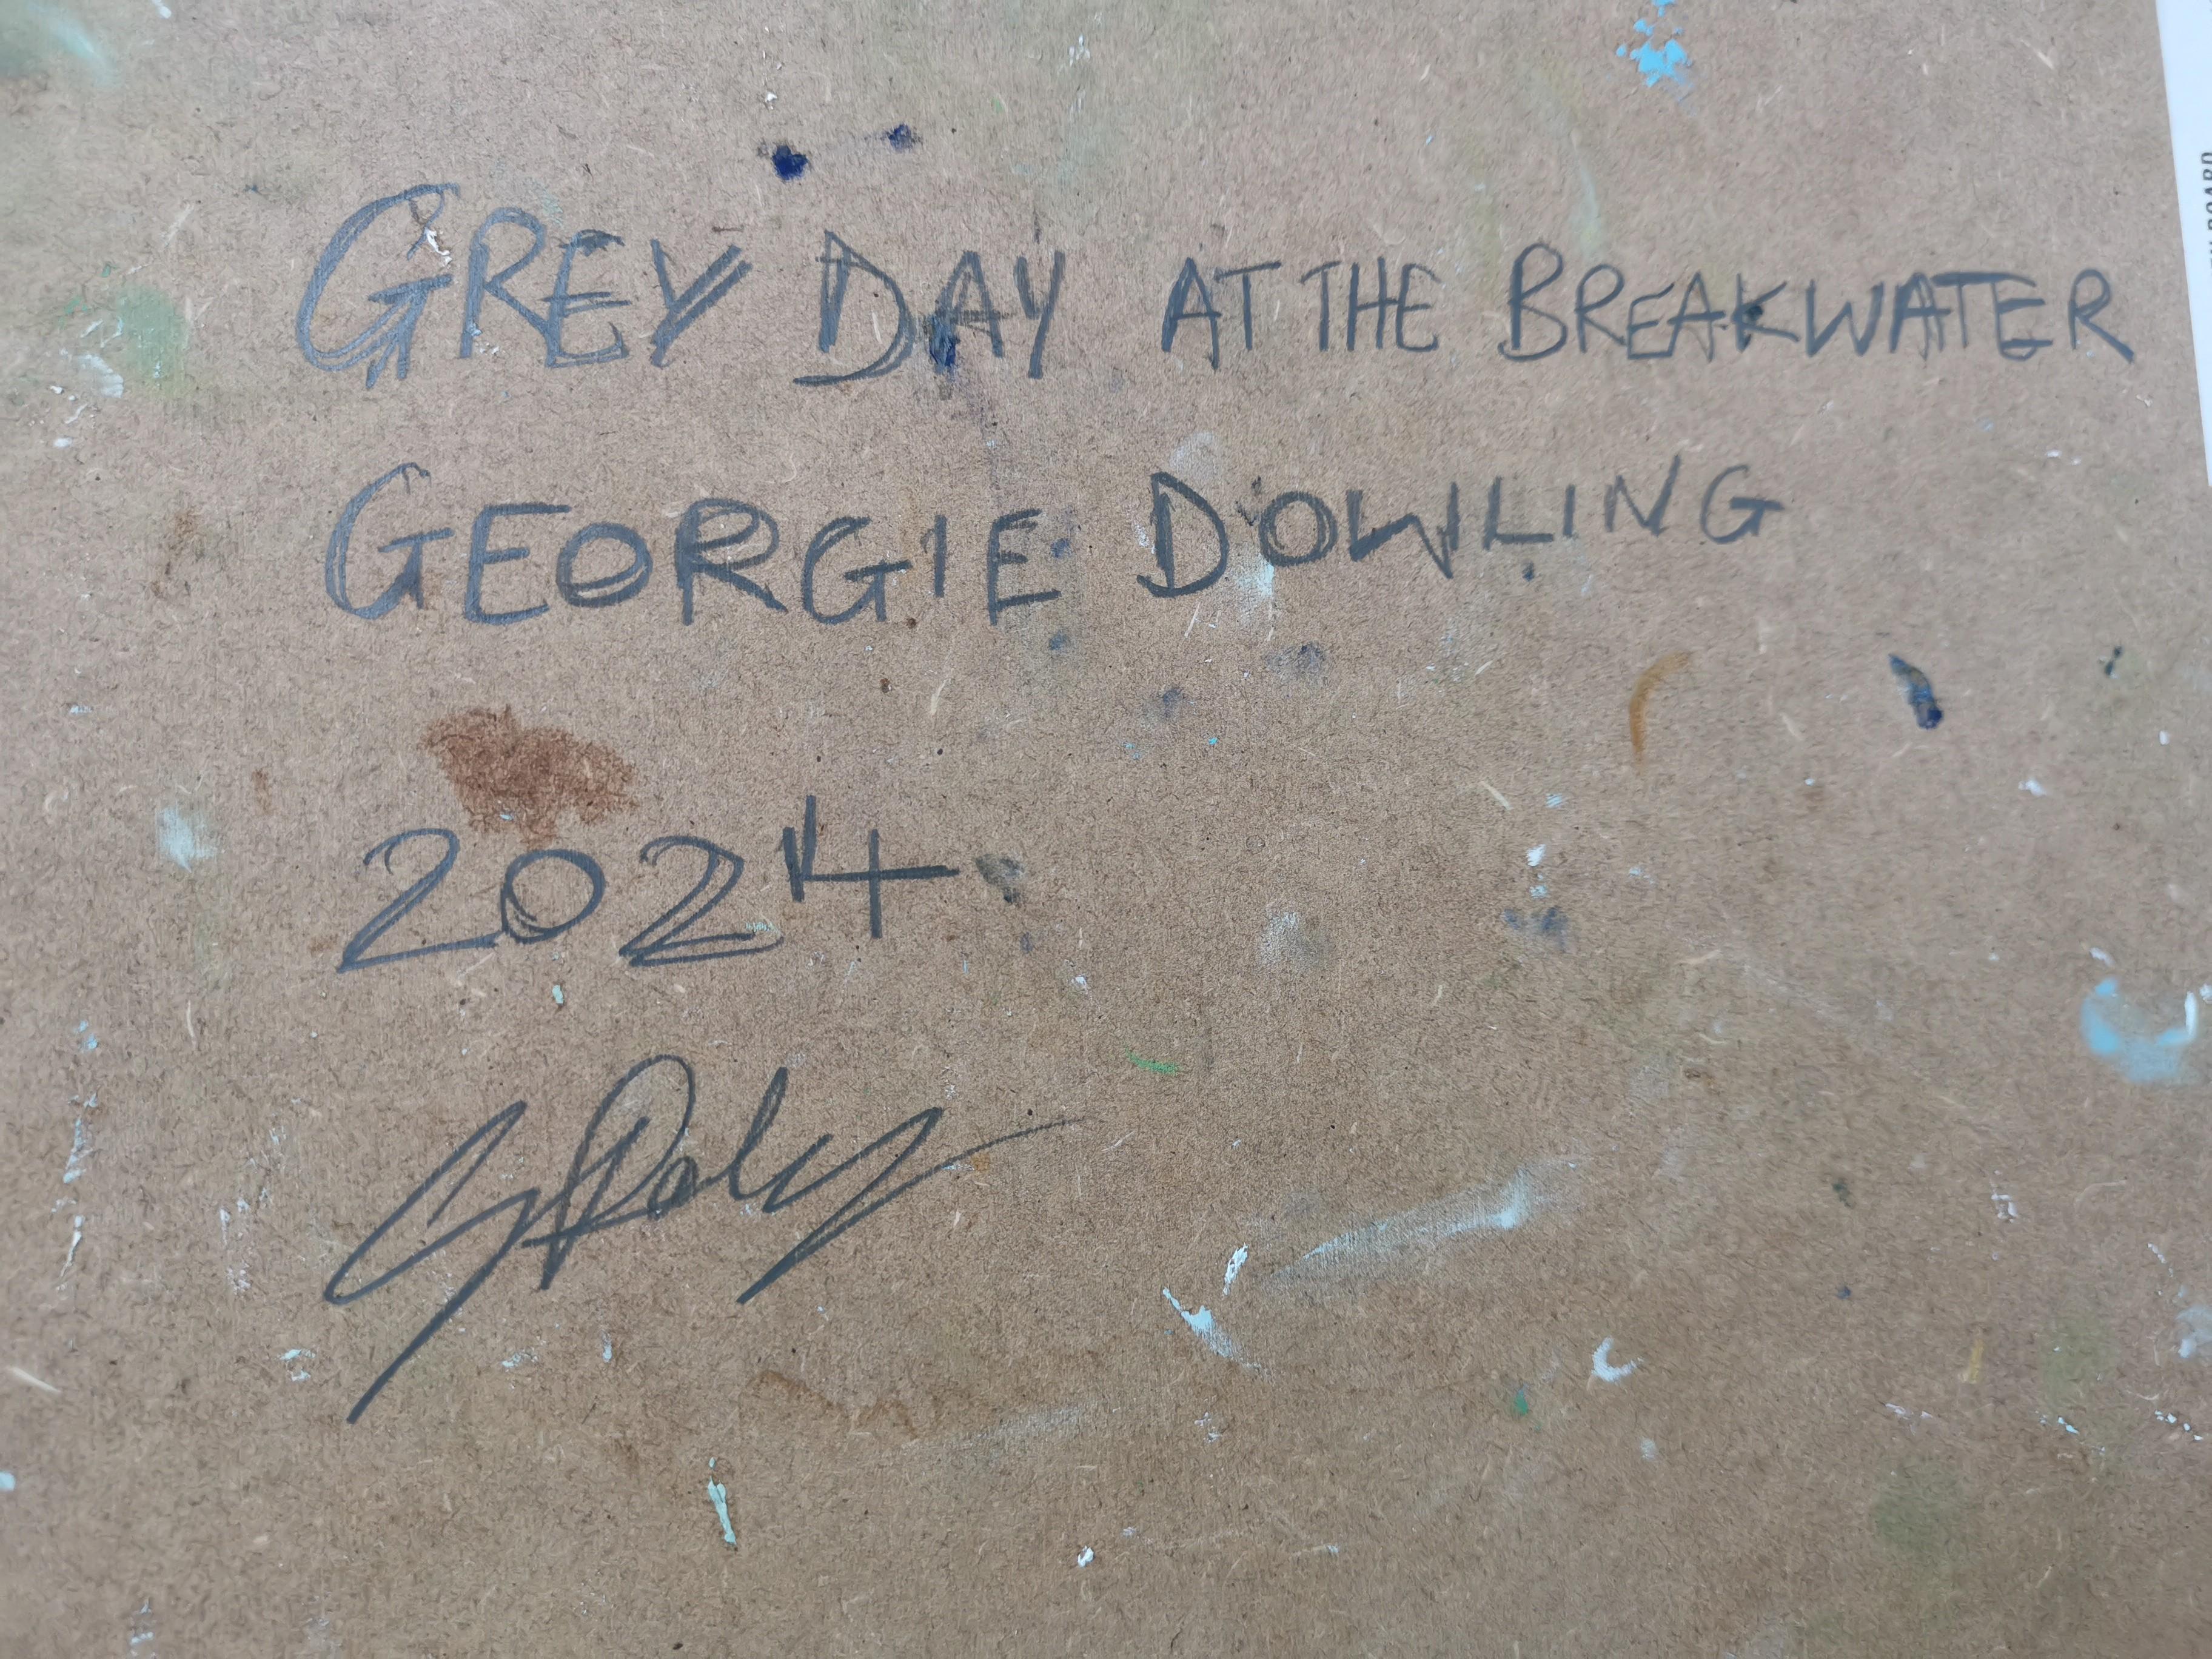 GREY DAY AT THE BREAKWATER
GEORGIE DOWLING
2024